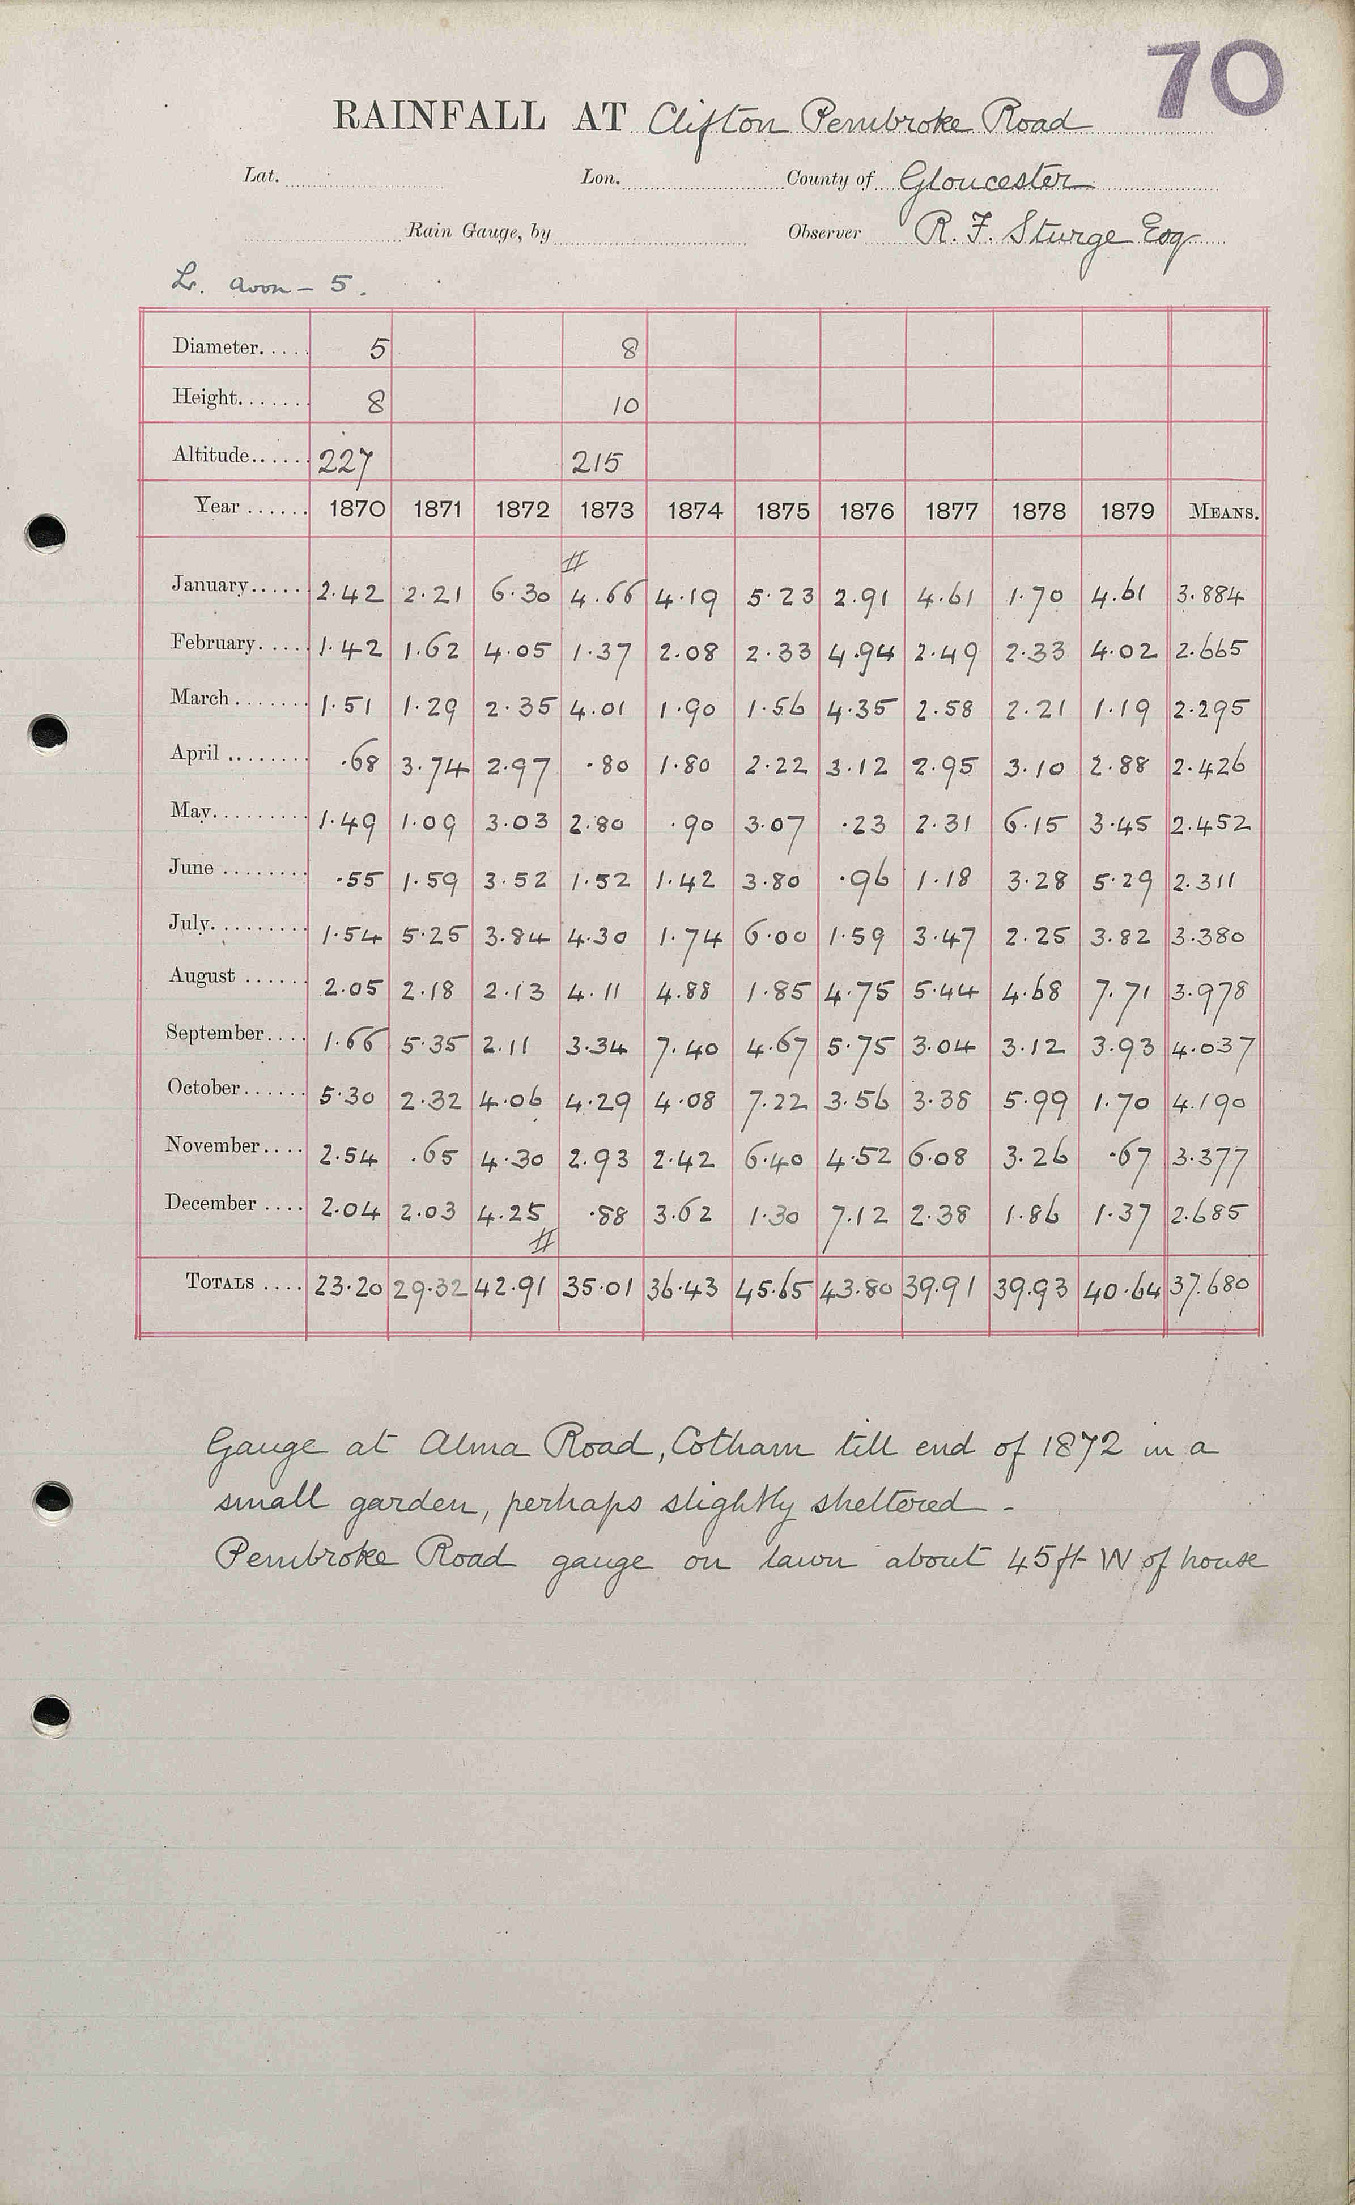 70
RAINFALL AT Clifton Pembroke Road
Lat. Lon. County of Gloucester
Rain Gauge, by Observer R. F. Sturge Esq
L. Avon - 5.
Diameter..... 5 8
Height....... 8 10
Altitude...... 227 215
Year ...... 1870 1871 1872 1873 1874 1875 1876 1877 1878 1879 MEANS.
#
January..... 2.42 2.21 6.30 4.66 4.19 5.23 2.91 4.61 1.70 4.61 3.884
February..... 1.42 1.62 4.05 1.37 2.08 2.33 4.94 2.49 2.33 4.02 2.665
March ....... 1.51 1.29 2.35 4.01 1.90 1.56 4.35 2.58 2.21 1.19 2.295
April ........ .68 3.74 2.97 .80 1.80 2.22 3.12 2.95 3.10 2.88 2.426
May......... 1.49 1.09 3.03 2.80 .90 3.07 .23 2.31 6.15 3.45 2.452
June ........ .55 1.59 3.52 1.52 1.42 3.80 .96 1.18 3.28 5.29 2.311
July......... 1.54 5.25 3.84 4.30 1.74 6.00 1.59 3.47 2.25 3.82 3.380
August ...... 2.05 2.18 2.13 4.11 4.88 1.85 4.75 5.44 4.68 7.71 3.978
September.... 1.66 5.35 2.11 3.34 7.40 4.67 5.75 3.04 3.12 3.93 4.037
October...... 5.30 2.32 4.06 4.29 4.08 7.22 3.56 3.38 5.99 1.70 4.190
November.... 2.54 .65 4.30 2.93 2.42 6.40 4.52 6.08 3.26 .67 3.377
December .... 2.04 2.03 4.25 .88 3.62 1.30 7.12 2.38 1.86 1.37 2.685
#
TOTALS .... 23.20 29.32 42.91 35.01 36.43 45.65 43.80 39.91 39.93 40.64 37.680
Gauge at Alma Road, Cotham till end of 1872 in a
small garden, perhaps slightly sheltered -
Pembroke Road gauge on lawn about 45ft W of house